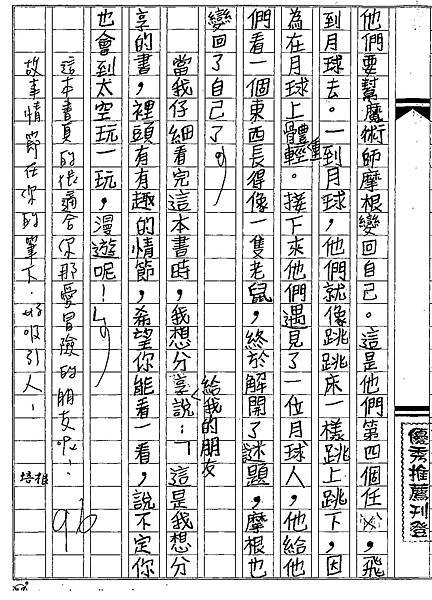 他們要幫魔術師摩根變回自己。這是他們第四個任務,飛
到月球去。一到月球,他們就像跳跳床一樣跳上跳下,因
為在月球上體重輕。接下來他們遇見了一位月球人,他給他
們看一個東西長得像一隻老鼠,終於解開了謎題,摩根也
變回了自己了。
當我仔細看完這本書時,我想分享給我的朋友說:「這是我想分
享的書,裡頭有有趣的情節,希望你能看一看,說不定你
也會到太空玩一玩,漫遊呢!」
這本書真的很適合你那愛冒險的朋友啦!
故事情節在你的筆下,好吸引人!
培根
96
優秀推薦刊登